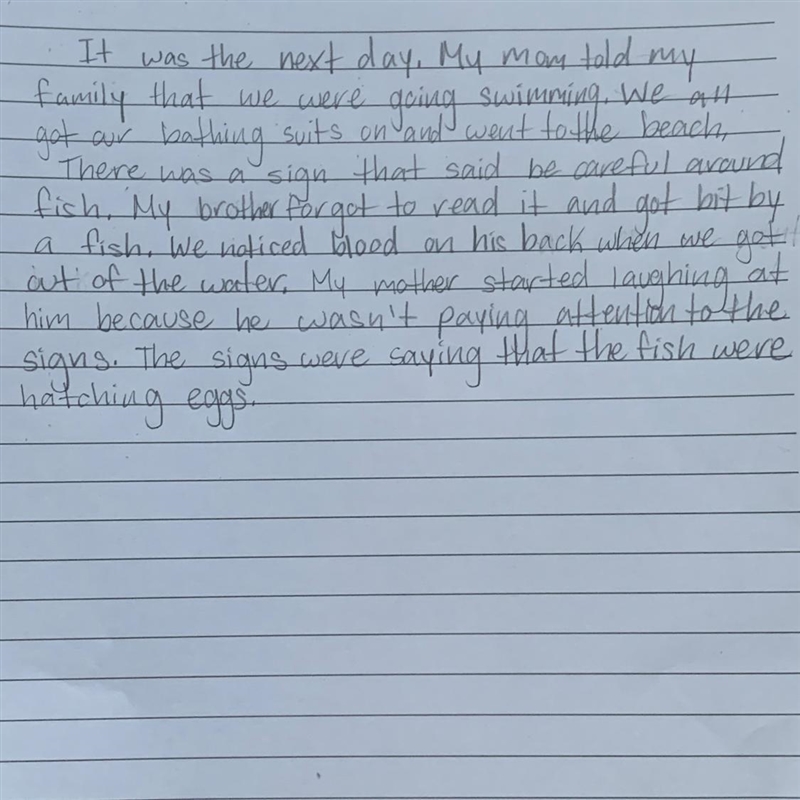 It was the next day. My mom told my
family that we were going swimming. We all
got our bathing suits on and went to the beach.
There was a sign that said be careful around
fish. My brother forgot to read it and got bit by
a fish. We noticed blood on his back when we got
out of the water. My mother started laughing at
him because he wasn't paying attention to the
signs. The signs were saying that the fish were
hatching eggs.